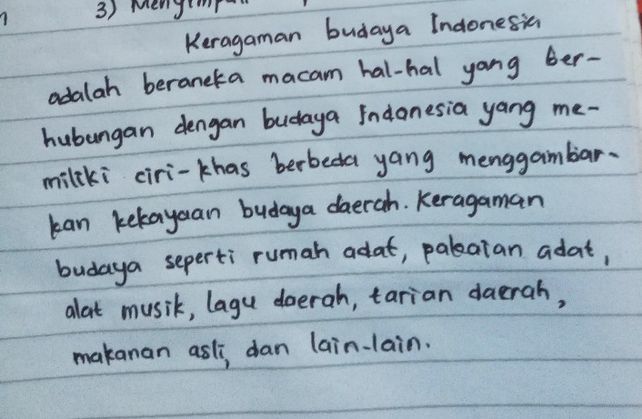 3) Mengimpul
Keragaman budaya Indonesia
adalah beraneka macam hal-hal yang ber-
hubungan dengan budaya Indonesia yang me-
miliki ciri-khas berbeda yang menggambar-
kan kekayaan budaya daerah. Keragaman
budaya seperti rumah adat, pakaian adat,
alat musik, lagu daerah, tarian daerah,
makanan asli, dan lain-lain.